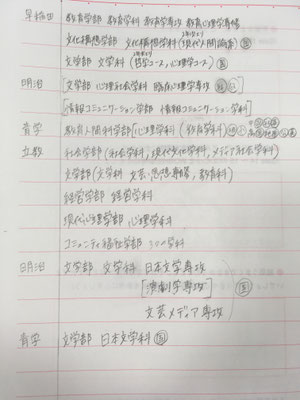 早稲田 教育学部 教育学科 教育学専攻 教育心理学専修
文化構想学部 文化構想学科(現代人間論系) 国
文学部 文学科(哲学コース、心理学コース) 国
明治 [文学部 心理社会学科 臨床心理学専攻
[情報コミュニケーション学部 情報コミュニケーション学科]
青学 教育人間科学部[心理学科(教育学科)
立教 社会学部(社会学科, 現代文化学科, メディア社会学科)
文学部(文学科 文芸・思想専修, 教育科)
経営学部 経営学科
現代心理学部 心理学科
コミュニティ福祉学部 3つの学科
明治 文学部 文学科 日本文学専攻
[演劇学専攻] 国
文芸メディア専攻
青学 文学部 日本文学科 国